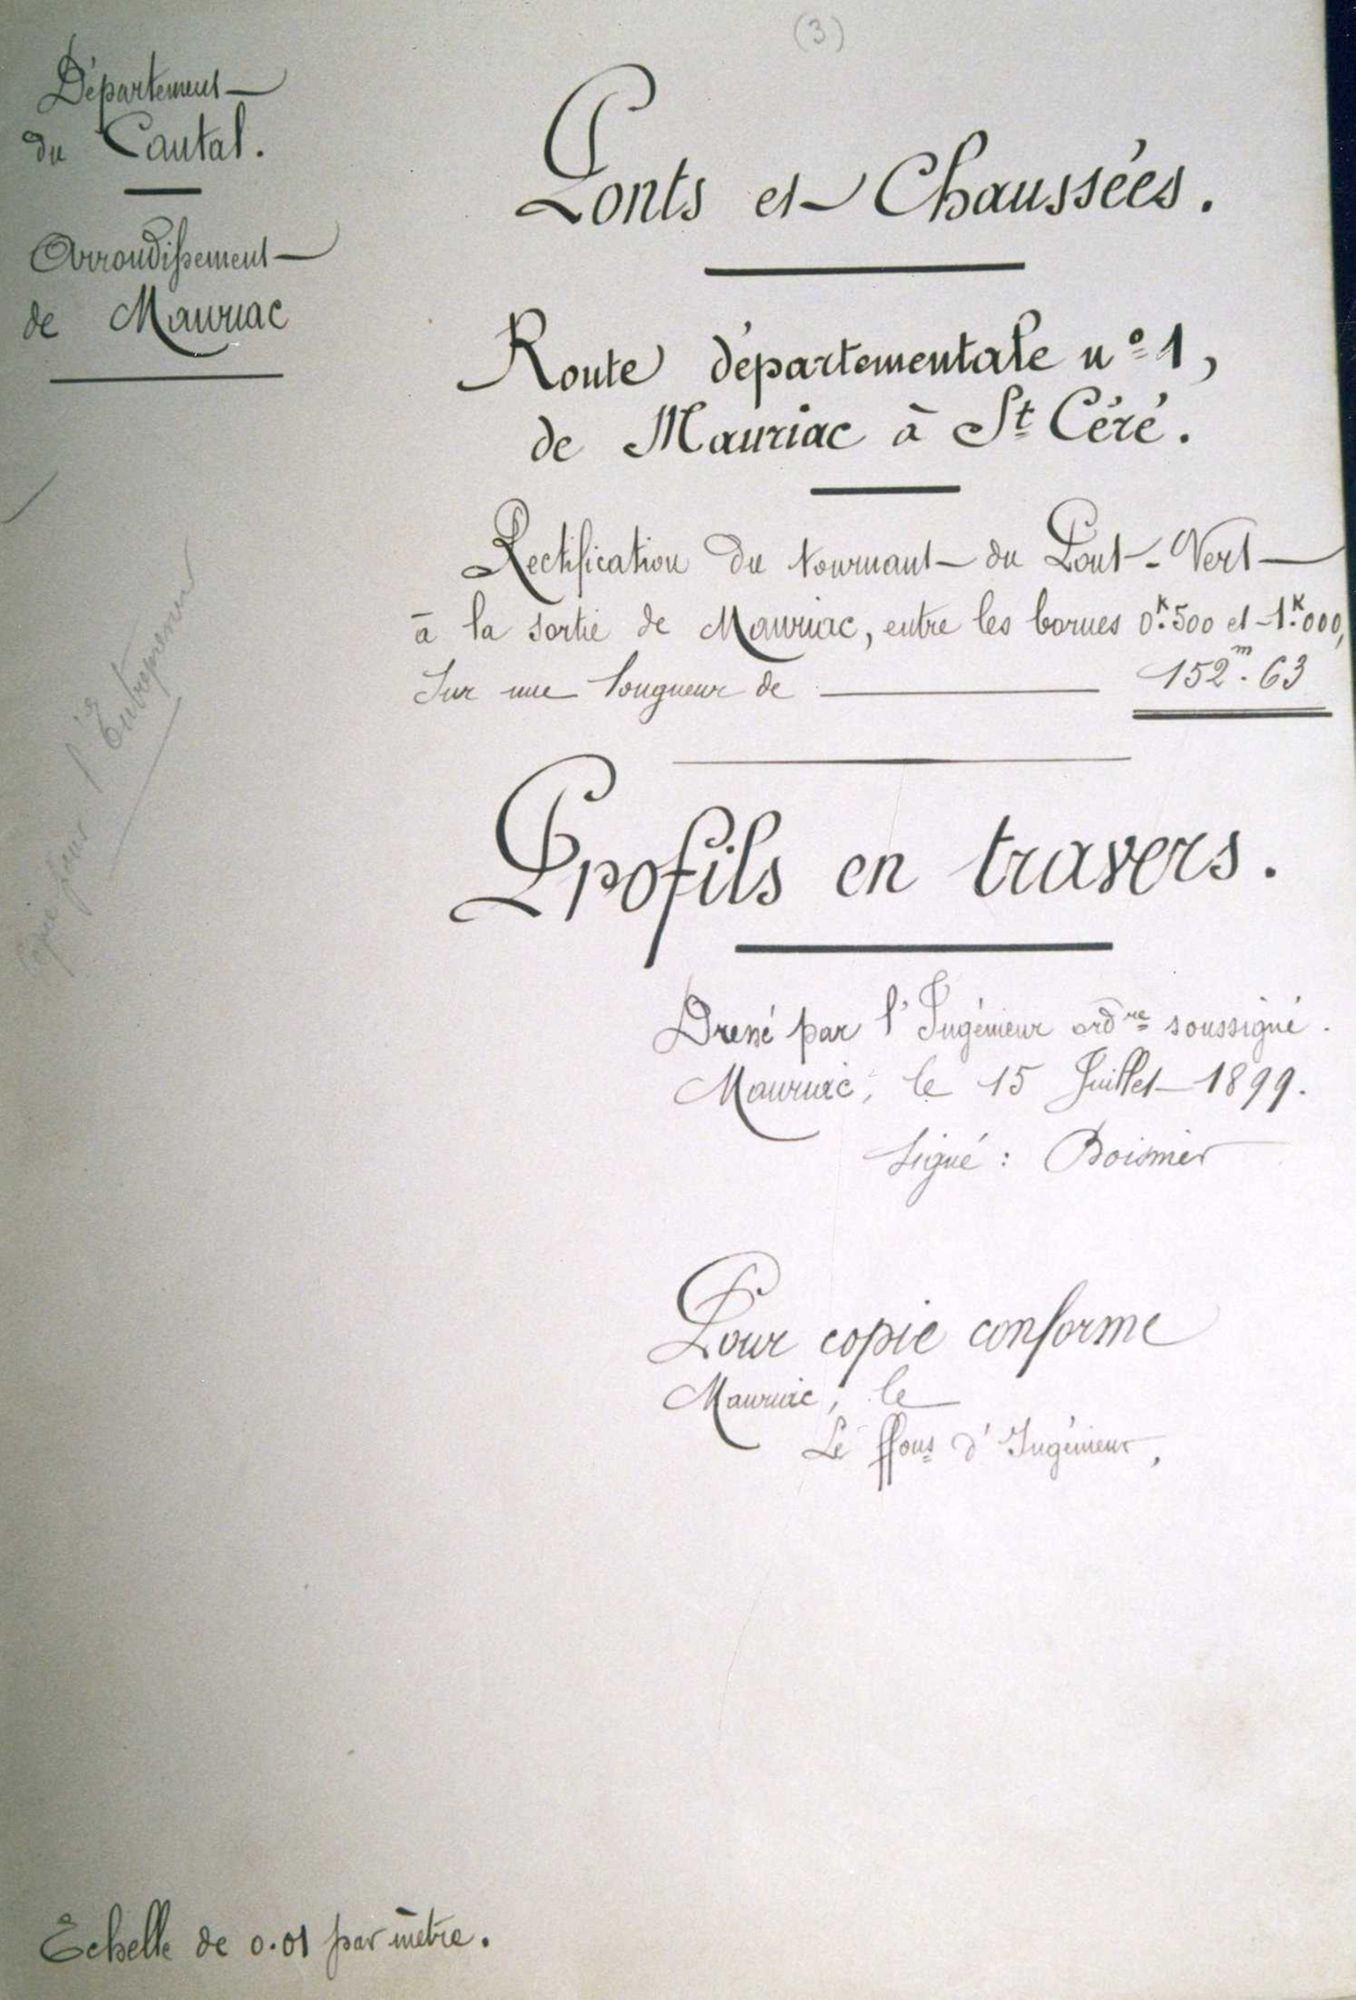 (3)
Département
du Cantal.
Arrondissement
de Mauriac
Ponts et Chaussées.
Route départementale nº 1,
de Mauriac à St Céré.
Rectification du tournant du Pont-Vert
à la sortie de Mauriac, entre les bornes 0k.500 et 1k.000,
Sur une longueur de 152m.63
Copie pour l'Entrepreneur
Profils en travers.
Dressé par l'Ingénieur ordre soussigné.
Mauriac, le 15 Juillet 1899.
Signé : Boismier
Pour copie conforme
Mauriac, le
Le ffons d'Ingénieur,
Echelle de 0.01 par mètre.